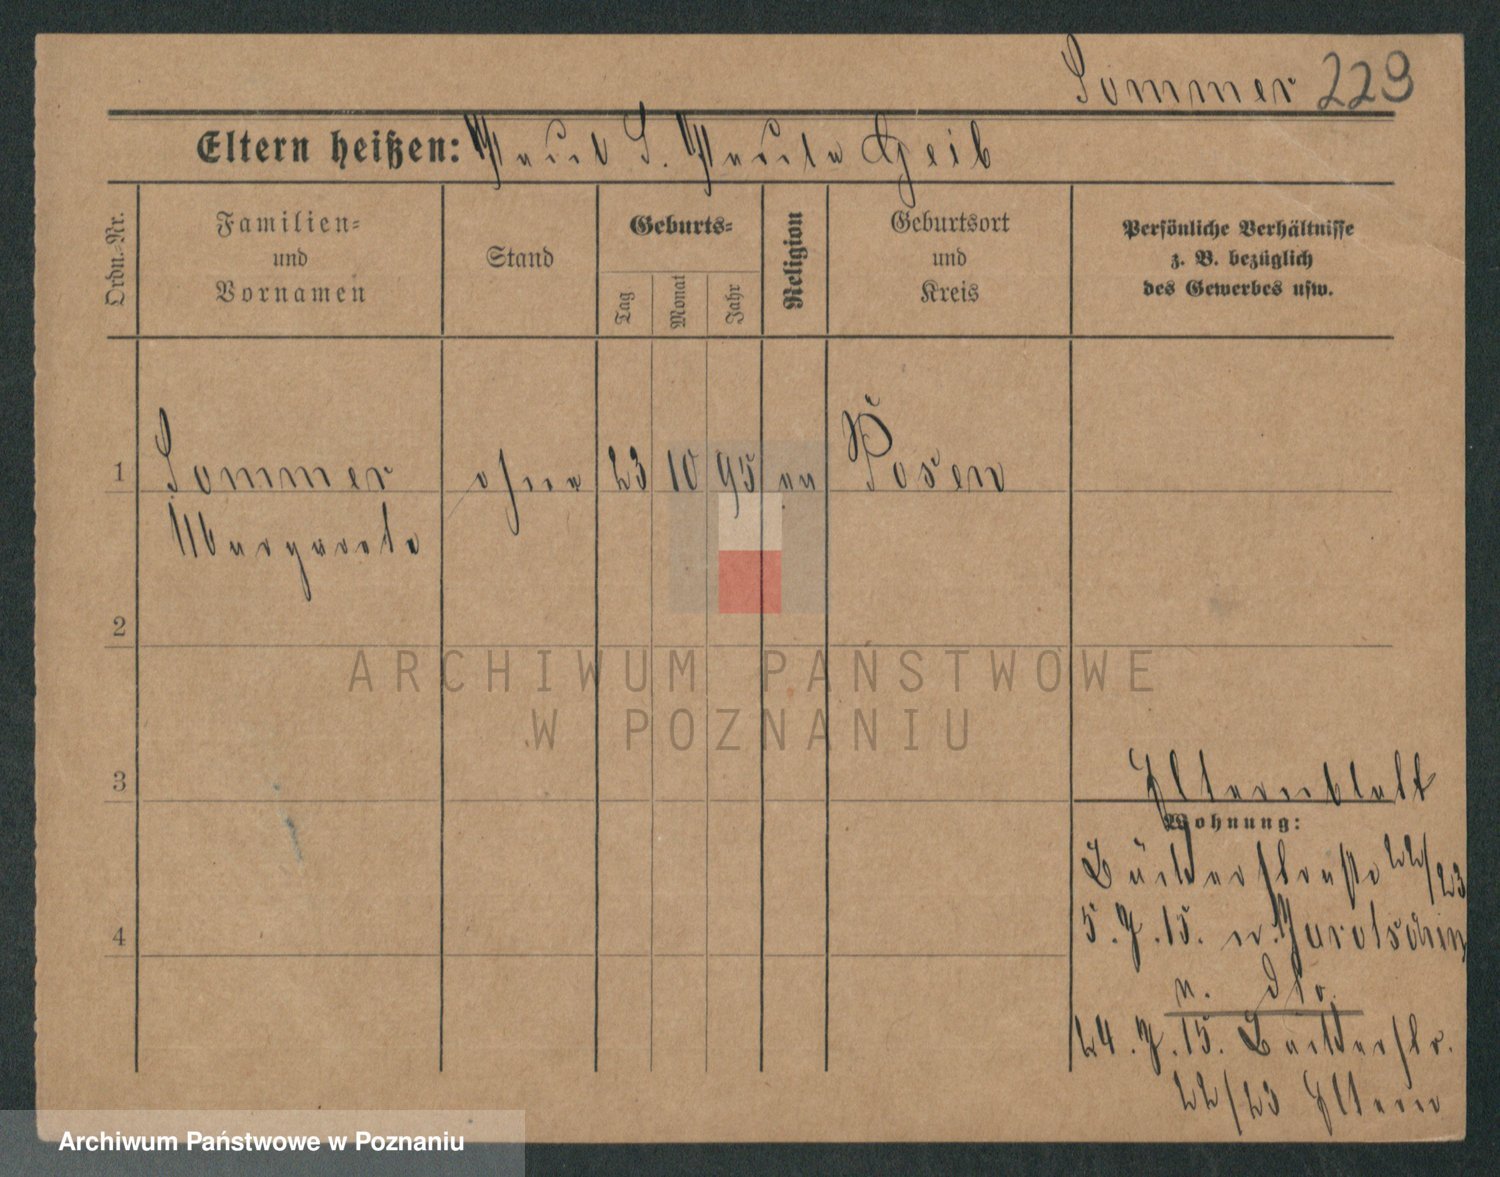 Sommer 229
Eltern heißen: Paul S. Paula Geib
Ordn.-Nr.
Familien-
und
Vornamen
Stand
Geburts-
Tag
Monat
Jahr
Religion
Geburtsort
und
Kreis
Persönliche Verhältnisse
z. B. bezüglich
des Gewerbes usw.
1 Sommer ohne 23 10 95 Posen
Margarete
2
3
4
ARCHIWUM PAŃSTWOWE
W POZNANIU
Elternblatt
Wohnung:
Bäckerstraße 22/23
5.7.15. n. Jarotschin
n. dto.
24.7.15. Bäckerstr.
22/23 Eltern
Archiwum Państwowe w Poznaniu